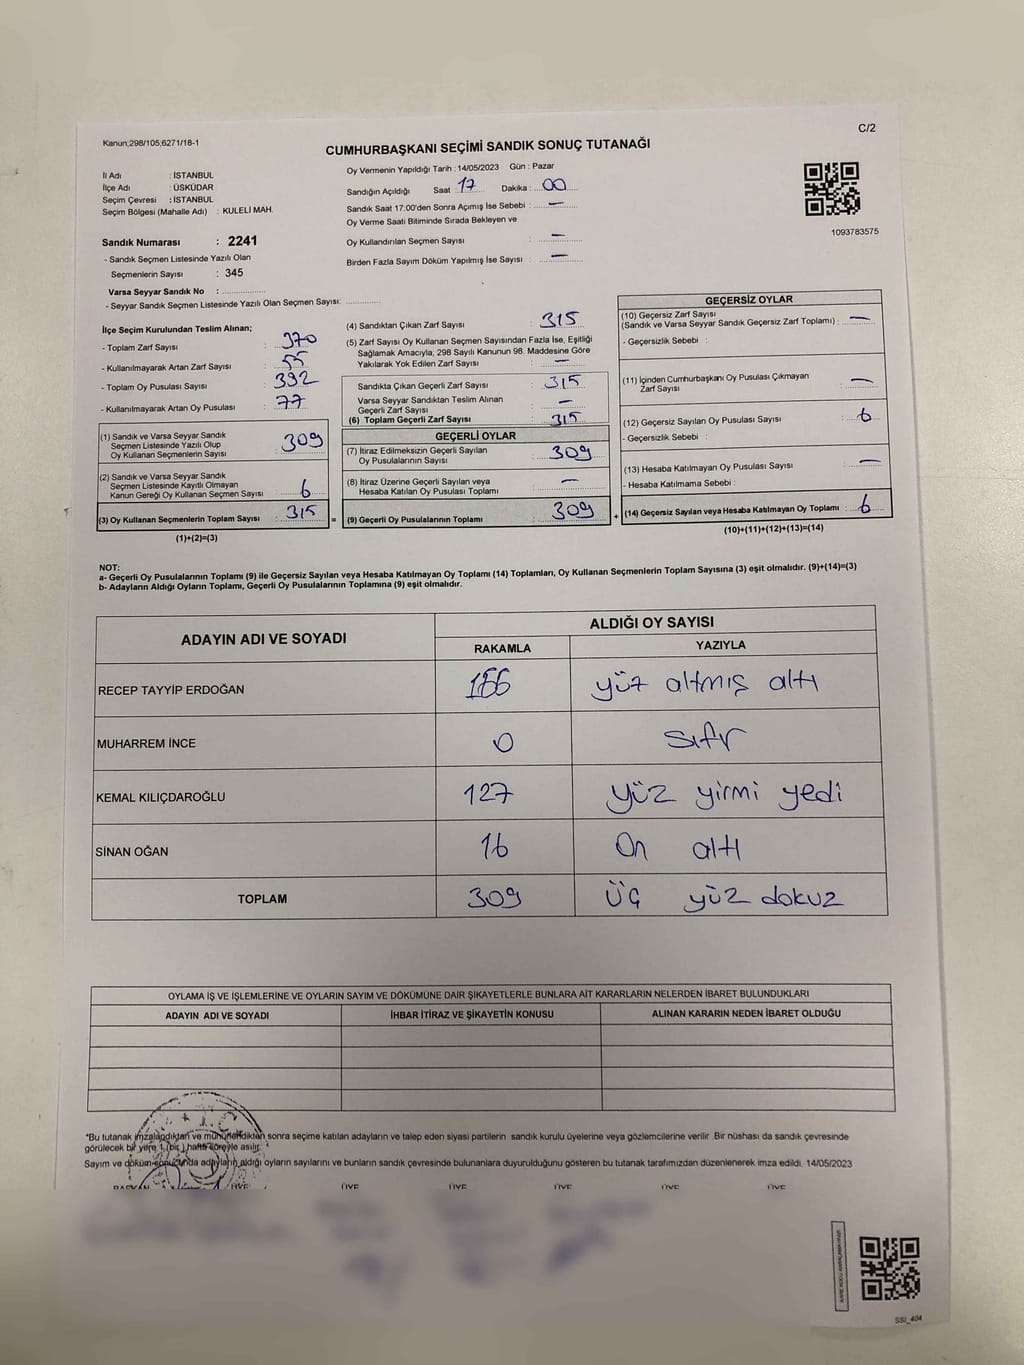 Kanun;298/105,6271/18-1
C/2
CUMHURBAŞKANI SEÇİMİ SANDIK SONUÇ TUTANAĞI
İl Adı : İSTANBUL
İlçe Adı : ÜSKÜDAR
Seçim Çevresi : İSTANBUL
Seçim Bölgesi (Mahalle Adı) : KULELİ MAH.
Sandık Numarası : 2241
- Sandık Seçmen Listesinde Yazılı Olan
Seçmenlerin Sayısı : 345
Varsa Seyyar Sandık No :
- Seyyar Sandık Seçmen Listesinde Yazılı Olan Seçmen Sayısı:
Oy Vermenin Yapıldığı Tarih : 14/05/2023 Gün : Pazar
Sandığın Açıldığı Saat 17 Dakika : 00
Sandık Saat 17:00'den Sonra Açımış İse Sebebi : —
Oy Verme Saati Bitiminde Sırada Bekleyen ve
Oy Kullandırılan Seçmen Sayısı : —
Birden Fazla Sayım Döküm Yapılmış İse Sayısı : —
1093783575
İlçe Seçim Kurulundan Teslim Alınan;
- Toplam Zarf Sayısı : 370
- Kullanılmayarak Artan Zarf Sayısı : 55
- Toplam Oy Pusulası Sayısı : 392
- Kullanılmayarak Artan Oy Pusulası : 77
(1) Sandık ve Varsa Seyyar Sandık
Seçmen Listesinde Yazılı Olup
Oy Kullanan Seçmenlerin Sayısı : 309
(2) Sandık ve Varsa Seyyar Sandık
Seçmen Listesinde Kayıtlı Olmayan
Kanun Gereği Oy Kullanan Seçmen Sayısı : 6
(3) Oy Kullanan Seçmenlerin Toplam Sayısı : 315 =
(1)+(2)=(3)
(4) Sandıktan Çıkan Zarf Sayısı : 315
(5) Zarf Sayısı Oy Kullanan Seçmen Sayısından Fazla İse, Eşitliği
Sağlamak Amacıyla, 298 Sayılı Kanunun 98. Maddesine Göre
Yakılarak Yok Edilen Zarf Sayısı : —
Sandıkta Çıkan Geçerli Zarf Sayısı : 315
Varsa Seyyar Sandıktan Teslim Alınan
Geçerli Zarf Sayısı : —
(6) Toplam Geçerli Zarf Sayısı : 315
GEÇERLİ OYLAR
(7) İtiraz Edilmeksizin Geçerli Sayılan
Oy Pusulalarının Sayısı : 309
(8) İtiraz Üzerine Geçerli Sayılan veya
Hesaba Katılan Oy Pusulası Toplamı : —
(9) Geçerli Oy Pusulalarının Toplamı : 309 +
GEÇERSİZ OYLAR
(10) Geçersiz Zarf Sayısı
(Sandık ve Varsa Seyyar Sandık Geçersiz Zarf Toplamı) : —
- Geçersizlik Sebebi :
(11) İçinden Cumhurbaşkanı Oy Pusulası Çıkmayan
Zarf Sayısı : —
(12) Geçersiz Sayılan Oy Pusulası Sayısı : 6
- Geçersizlik Sebebi :
(13) Hesaba Katılmayan Oy Pusulası Sayısı : —
- Hesaba Katılmama Sebebi :
(14) Geçersiz Sayılan veya Hesaba Katılmayan Oy Toplamı : 6
(10)+(11)+(12)+(13)=(14)
NOT:
a- Geçerli Oy Pusulalarının Toplamı (9) ile Geçersiz Sayılan veya Hesaba Katılmayan Oy Toplamı (14) Toplamları, Oy Kullanan Seçmenlerin Toplam Sayısına (3) eşit olmalıdır. (9)+(14)=(3)
b- Adayların Aldığı Oyların Toplamı, Geçerli Oy Pusulalarının Toplamına (9) eşit olmalıdır.
ADAYIN ADI VE SOYADI
ALDIĞI OY SAYISI
RAKAMLA YAZIYLA
RECEP TAYYİP ERDOĞAN 166 yüz altmış altı
MUHARREM İNCE 0 sıfır
KEMAL KILIÇDAROĞLU 127 yüz yirmi yedi
SİNAN OĞAN 16 On altı
TOPLAM 309 üç yüz dokuz
OYLAMA İŞ VE İŞLEMLERİNE VE OYLARIN SAYIM VE DÖKÜMÜNE DAİR ŞİKAYETLERLE BUNLARA AİT KARARLARIN NELERDEN İBARET BULUNDUKLARI
ADAYIN ADI VE SOYADI İHBAR İTİRAZ VE ŞİKAYETİN KONUSU ALINAN KARARIN NEDEN İBARET OLDUĞU
*Bu tutanak imzalandıktan ve mühürlendikten sonra seçime katılan adayların ve talep eden siyasi partilerin sandık kurulu üyelerine veya gözlemcilerine verilir .Bir nüshası da sandık çevresinde
görülecek bir yere 1 (bir) hafta süreyle asılır.
Sayım ve döküm sonucunda adayların aldığı oyların sayılarını ve bunların sandık çevresinde bulunanlara duyurulduğunu gösteren bu tutanak tarafımızdan düzenlenerek imza edildi. 14/05/2023
BAŞKAN ÜYE ÜYE ÜYE ÜYE ÜYE ÜYE
SSI_404